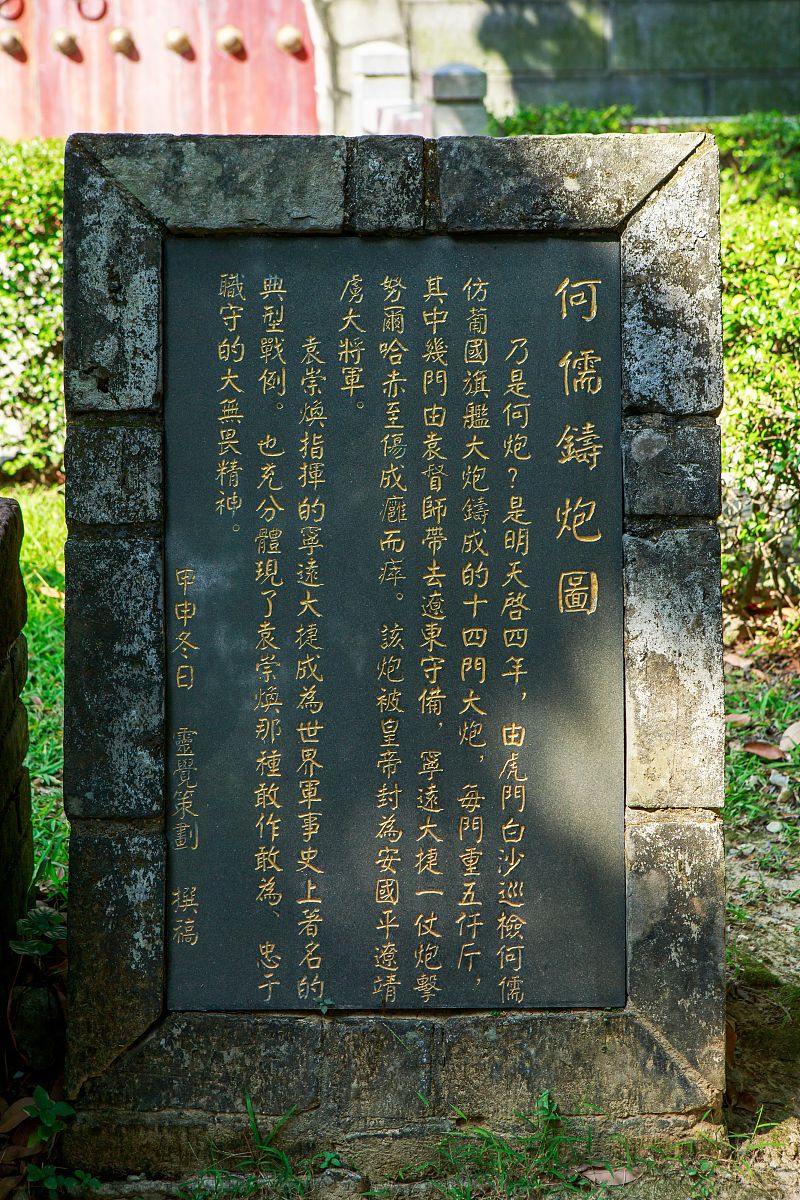 何儒鑄炮圖
乃是何炮？是明天啓四年，由虎門白沙巡檢何儒
仿葡國旗艦大炮鑄成的十四門大炮，每門重五仟斤，
其中幾門由袁督師帶去遼東守備，寧遠大捷一仗炮擊
努爾哈赤至傷成癰而瘁。該炮被皇帝封為安國平遼靖
虜大將軍。
袁崇煥指揮的寧遠大捷成為世界軍事史上著名的
典型戰例。也充分體現了袁崇煥那種敢作敢為、忠于
職守的大無畏精神。
甲申冬日 靈覺策劃 撰稿